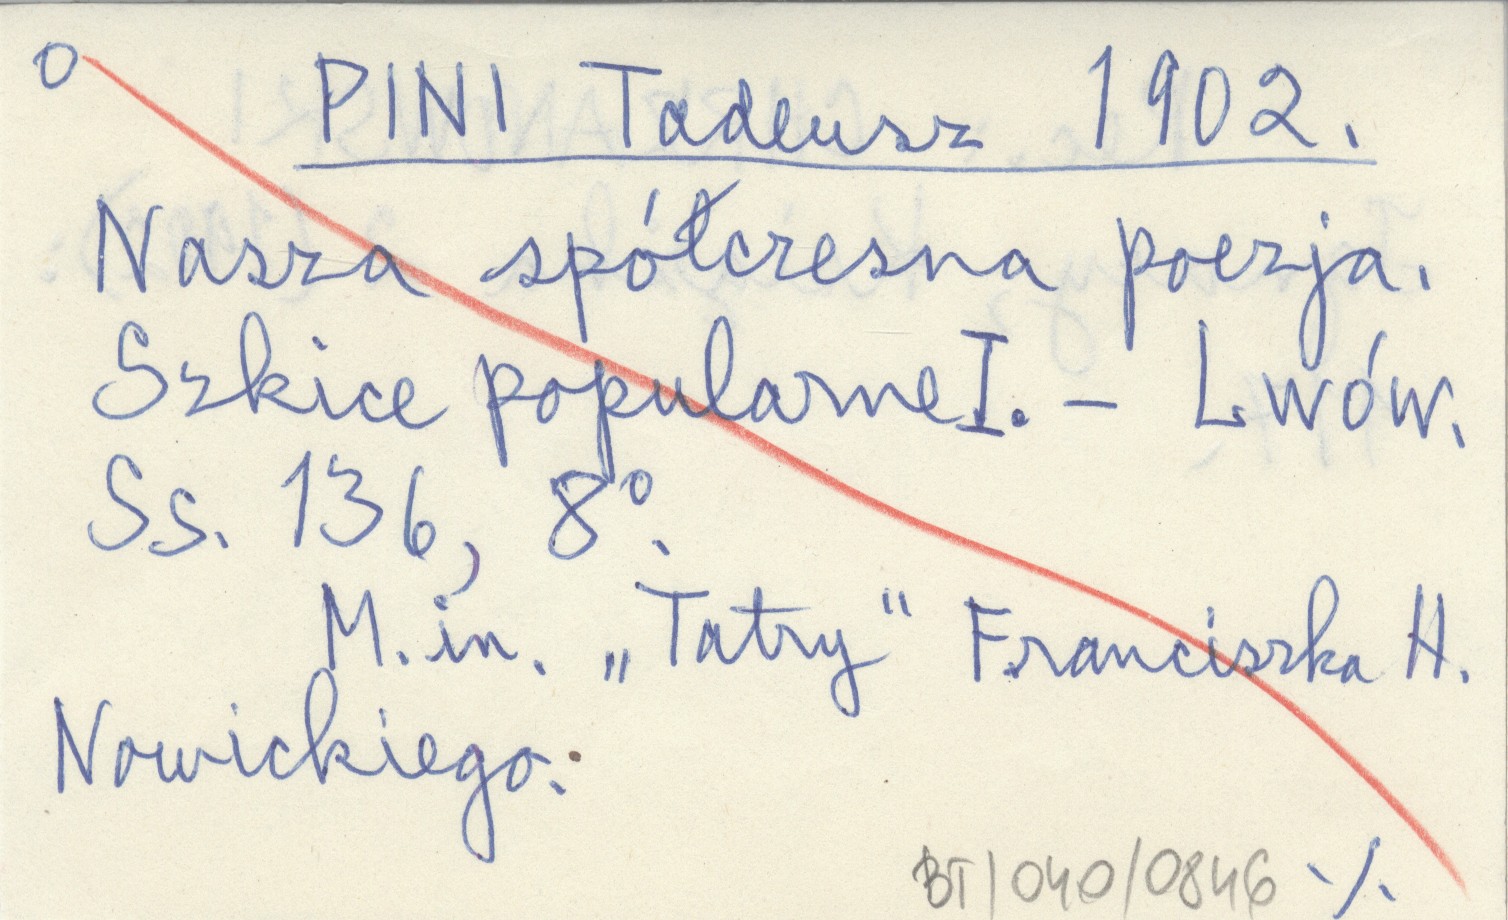 O PINI Tadeusz 1902.
Nasza spółczesna poezja.
Szkice popularne I. – Lwów.
Ss. 136, 8°.
M. in. „Tatry" Franciszka H.
Nowickiego.
BT/040/0846 ·/.